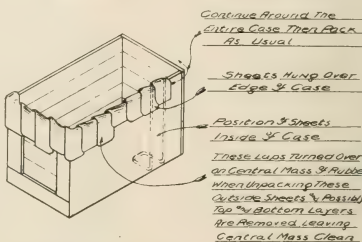 Continue Around The
Entire Case Then Pack
As Usual
Sheets Hung Over
Edge of Case
Position of Sheets
Inside of Case
These Laps Turned Over
on Central Mass of Rubbe
When Unpacking These
Outside Sheets & Possibly
Top & Bottom Layers
Are Removed, Leaving
Central Mass Clean